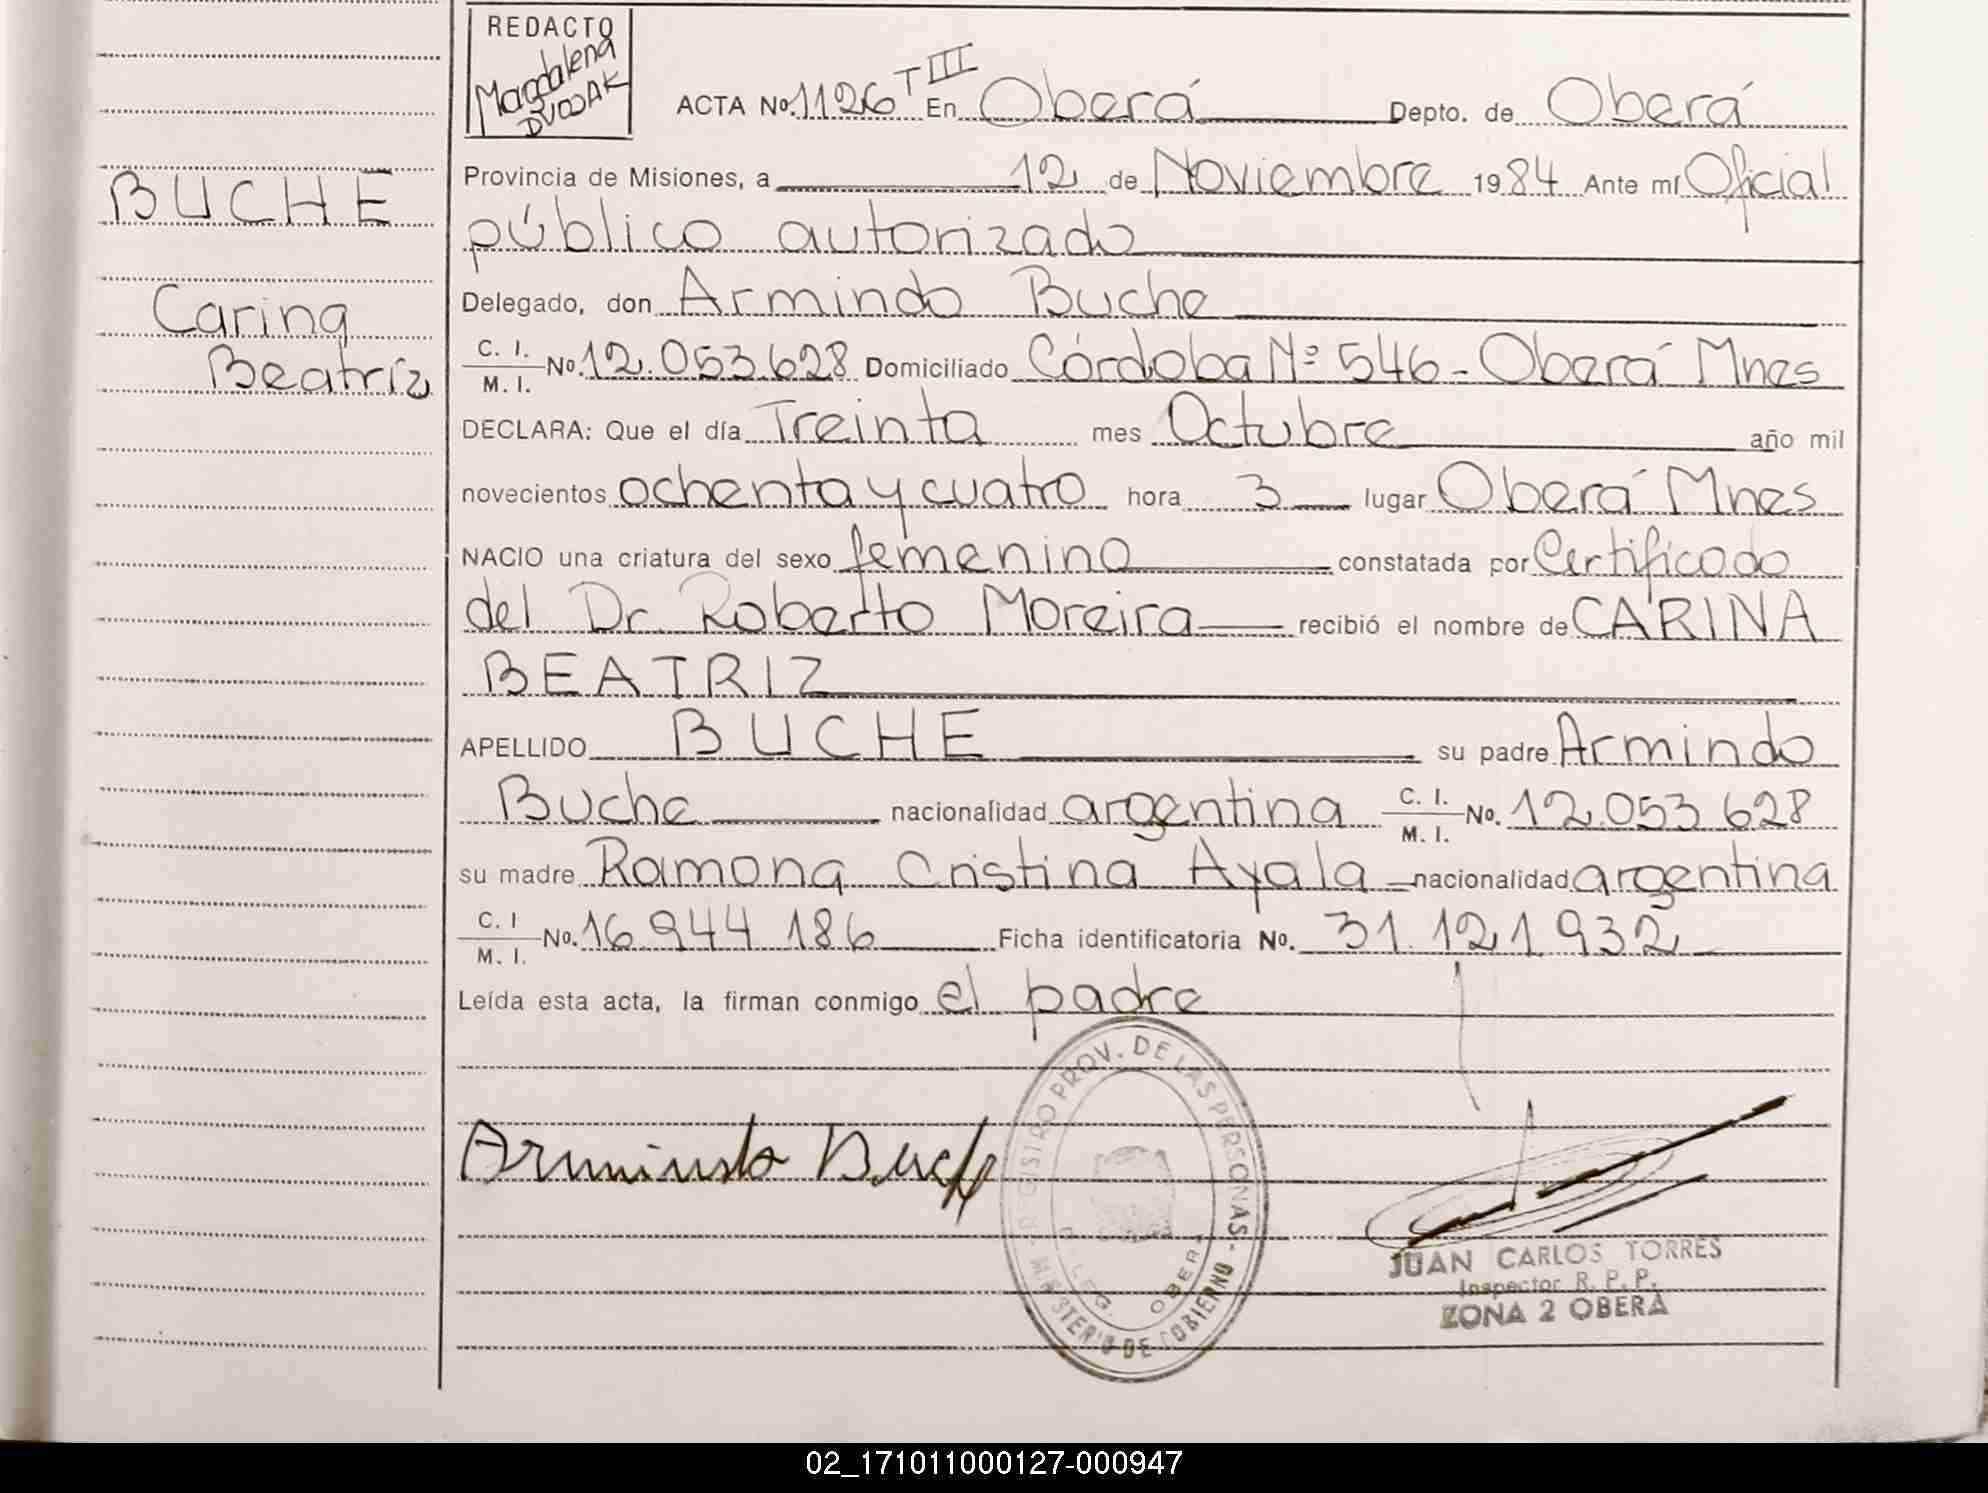 REDACTO
Magdalena
DVOJAK
ACTA No. 1126 T III En Oberá Depto. de Oberá
Provincia de Misiones, a 12 de Noviembre 1984 Ante mí Oficial
público autorizado
Delegado, don Armindo Buche
C. I. / M. I. No. 12.053.628 Domiciliado Córdoba Nº 546 - Oberá Mnes
DECLARA: Que el día Treinta mes Octubre año mil
novecientos ochenta y cuatro hora 3 lugar Oberá Mnes
NACIO una criatura del sexo femenino constatada por Certificado
del Dr. Roberto Moreira recibió el nombre de CARINA
BEATRIZ
APELLIDO BUCHE su padre Armindo
Buche nacionalidad argentina C. I. / M. I. No. 12.053 628
su madre Ramona Cristina Ayala nacionalidad argentina
C. I / M. I. No. 16 944 186 Ficha identificatoria No. 31.121 932
Leída esta acta, la firman conmigo el padre
BUCHE
Carina
Beatríz
Armindo Buche
REGISTRO PROV. DE LAS PERSONAS - MINISTERIO DE GOBIERNO -
DELEG. OBERA
JUAN CARLOS TORRES
Inspector R. P. P.
ZONA 2 OBERA
02_171011000127-000947